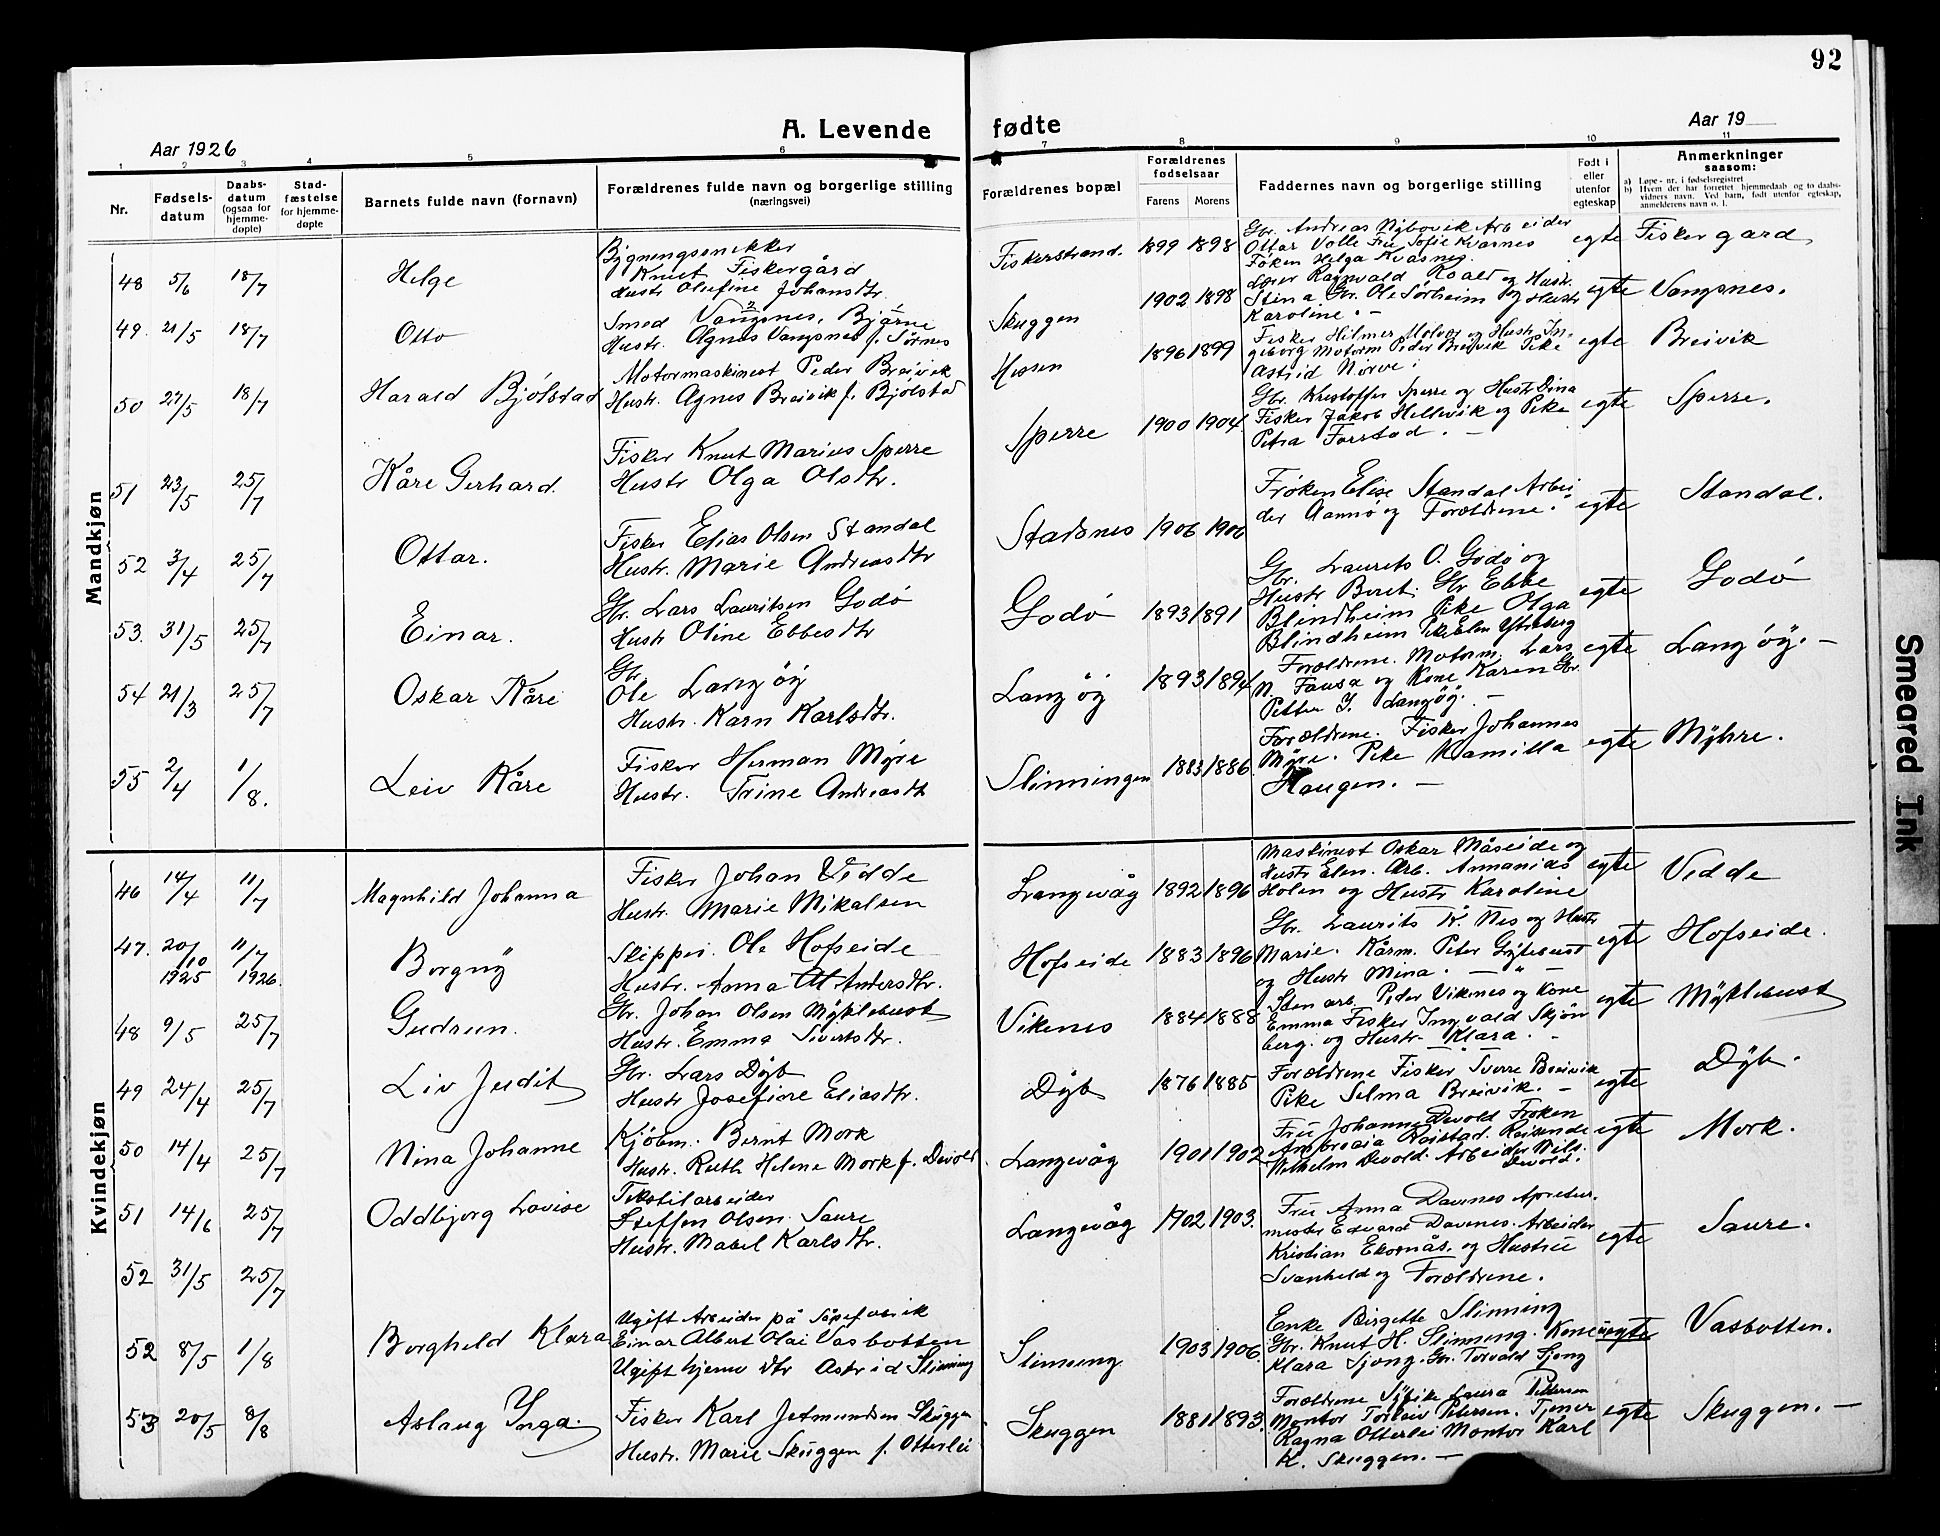 92
A. Levende fødte
Aar 1926
Aar 19
1 2 3 4 5 6 7 8 9 10 11
Nr.
Fødsels-
datum
Daabs-
datum
(ogsaa for
hjemme-
døpte)
Stad-
fæstelse
for hjemme-
døpte
Barnets fulde navn (fornavn)
Forældrenes fulde navn og borgerlige stilling
(næringsvei)
Forældrenes bopæl
Forældrenes
fødselsaar
Farens Morens
Faddernes navn og borgerlige stilling
Født i
eller
utenfor
egteskap
Anmerkninger
saasom:
a) Løpe-nr. i fødselsregistret
b) Hvem der har forrettet hjemmedaab og to daabs-
vidners navn. Ved barn, født utenfor egteskap,
anmelderens navn o. l.
Mandkjøn
48 5/6 18/7 Helge
Bygningssnekker
Knut Fiskergård
Hustr Olufine Johansdtr.
Fiskerstrand. 1899 1898
Gbr. Andreas Nybovik Arbeider
Ottar Volle Fru Sofie Kvasnes
Frøken Helga Kvasnes.
egte Fiskergard
49. 21/5 18/7 Otto
Smed Vangsnes, Bjarne
Hustr. Agnes Vangsnes f. Sørnes
Skuggen 1902 1898
Lærer Ragnvald Roald og Hustr.
Stina Gbr. Ole Sørheim og Hustr
Karoline. –
egte Vangsnes.
50 27/5 18/7 Harald Bjölstad
Motormaskinist Peder Breivik
Hustr. Agnes Breivik f. Bjölstad
Hessen 1896 1899
Fisker Hilmer Molvær og Hustr. In-
geborg Motorm Peder Breivik Pike
Astrid Nörve.
egte Breivik
51 23/5 25/7 Kåre Gerhard.
Fisker Knut Marius Sperre
Hustr Olga Olsdtr.
Sperre 1900 1904
Gbr. Kristoffer Sperre og Hustr Dina
Fisker Jakob Hellevik og Pike
Petra Forstad. –
egte Sperre.
52 3/4 25/7 Ottar.
Fisker Elias Olsen Standal
Hustr. Marie Andreasdtr
Stadsnes 1906 1906
Frøken Elise Standal Arbei-
der Aannø og Forældrene.
egte Standal.
53. 31/5 25/7 Einar.
Gbr. Lars Lauritsen Godö
Hustr Oline Ebbesdtr
Godö 1893 1891
Gbr. Laurits O. Godö og
Hustr Beret. Gbr Ebbe
Blindheim Pike Olga
Blindheim Pike Elen Ytreberg
egte Godö
54 21/3 25/7 Oskar Kåre
Gbr.
Ole Langöy
Hustr. Karn Karlsdtr.
Langöy 1893 1894
Forældrene. Motorm. Lars
N. Fausa og Kone Karen Gbr.
Petter I. Langöy. –
egte Langöy. –
55 2/4 1/8. Leiv Kåre
Fisker Herman Myre
Hustr. Trine Andreasdtr
Slinningen 1883 1886
Forældrene. Fisker Johannes
Myre. Pike Kamilla
Haugen. –
egte Myhre.
Kvindekjøn
46 14/4 11/7 Magnhild Johanna
Fisker Johan Vedde
Hustr. Marie Mikalsen
Langevåg 1892 1896
Maskinist Oskar Måseide og
Hustr Elen. Arb. Ammanias
Holen og Hustr Karoline
egte Vedde
47. 20/10 1925 11/7 1926. Borgny
Skipper. Ole Hofseide
Hustr. Anna M Andersdtr.
Hofseide 1883 1896
Gbr. Laurits K. Nes og Hustr
Marie. Kårm. Peter Gytebust
og Hustr Mina. –"–
egte Hofseide.
48 9/5 25/7 Gudrun.
Gbr. Johan Olsen Myklebust
Hustr. Emma Sivertsdtr.
Vikenes 1884 1888
Sten arb. Peder Vikenes og Kone
Emma Fisker Ingvald Skjön
berg. og Hustr. Klara. –
egte Myklebust
49 24/4 25/7 Liv Judit
Gbr. Lars Dyb
Hustr Josefine Eliasdtr.
Dyb 1876 1885
Forældrene Fisker Sverre Breivik
Pike Selma Breivik. –
egte Dyb.
50 14/4 25/7 Nina Johanne
Kjöbm. Bernt Mork
Hustr. Ruth Helene Mork f. Devold
Langevåg 1901 1902
Fru Johanne Devold Frøken
Ambrosia Roistad. Reisende
Wilhelm Devold. Arbeider Nils.
Devold.
egte Mork.
51 14/6 25/7 Oddbjorg Lovise
Tekstilarbeider
Steffen Olsen Saure
Hustr. Mabel Karlsdtr.
Langevåg 1902 1903.
Fru Anna Davnes Apretur-
mester Edvard Davnes. Arbeider
Kristian Ekornås. og Hustru
Svanheld og Forældrene.
egte Saure.
52 31/5 25/7
52 8/5 1/8 Borgheld Klara
Ugift Arbeider på Såpefabrik
Einar Albert Olai Vasbotten
Ugift hjemv dtr Astrid Slinning
Slinning 1903 1906.
Enke Birgette Slinning
Gbr. Knut H. Slinning. Kone
Klara Sjong. Gbr. Torvald Sjong
uegte Vasbotten.
53 20/5 8/8 Aslaug Inga.
Fisker Karl Jetmundsen Skuggen
Hustr. Marie Skuggen f. Otterlei
Skuggen 1881 1893.
Forældrene Sypike Laura Pedersen
Montör Torleiv Petersen. Tjener
Ragna Otterlei Montör Karl
K. Skuggen. –
egte Skuggen. –
Smeared Ink